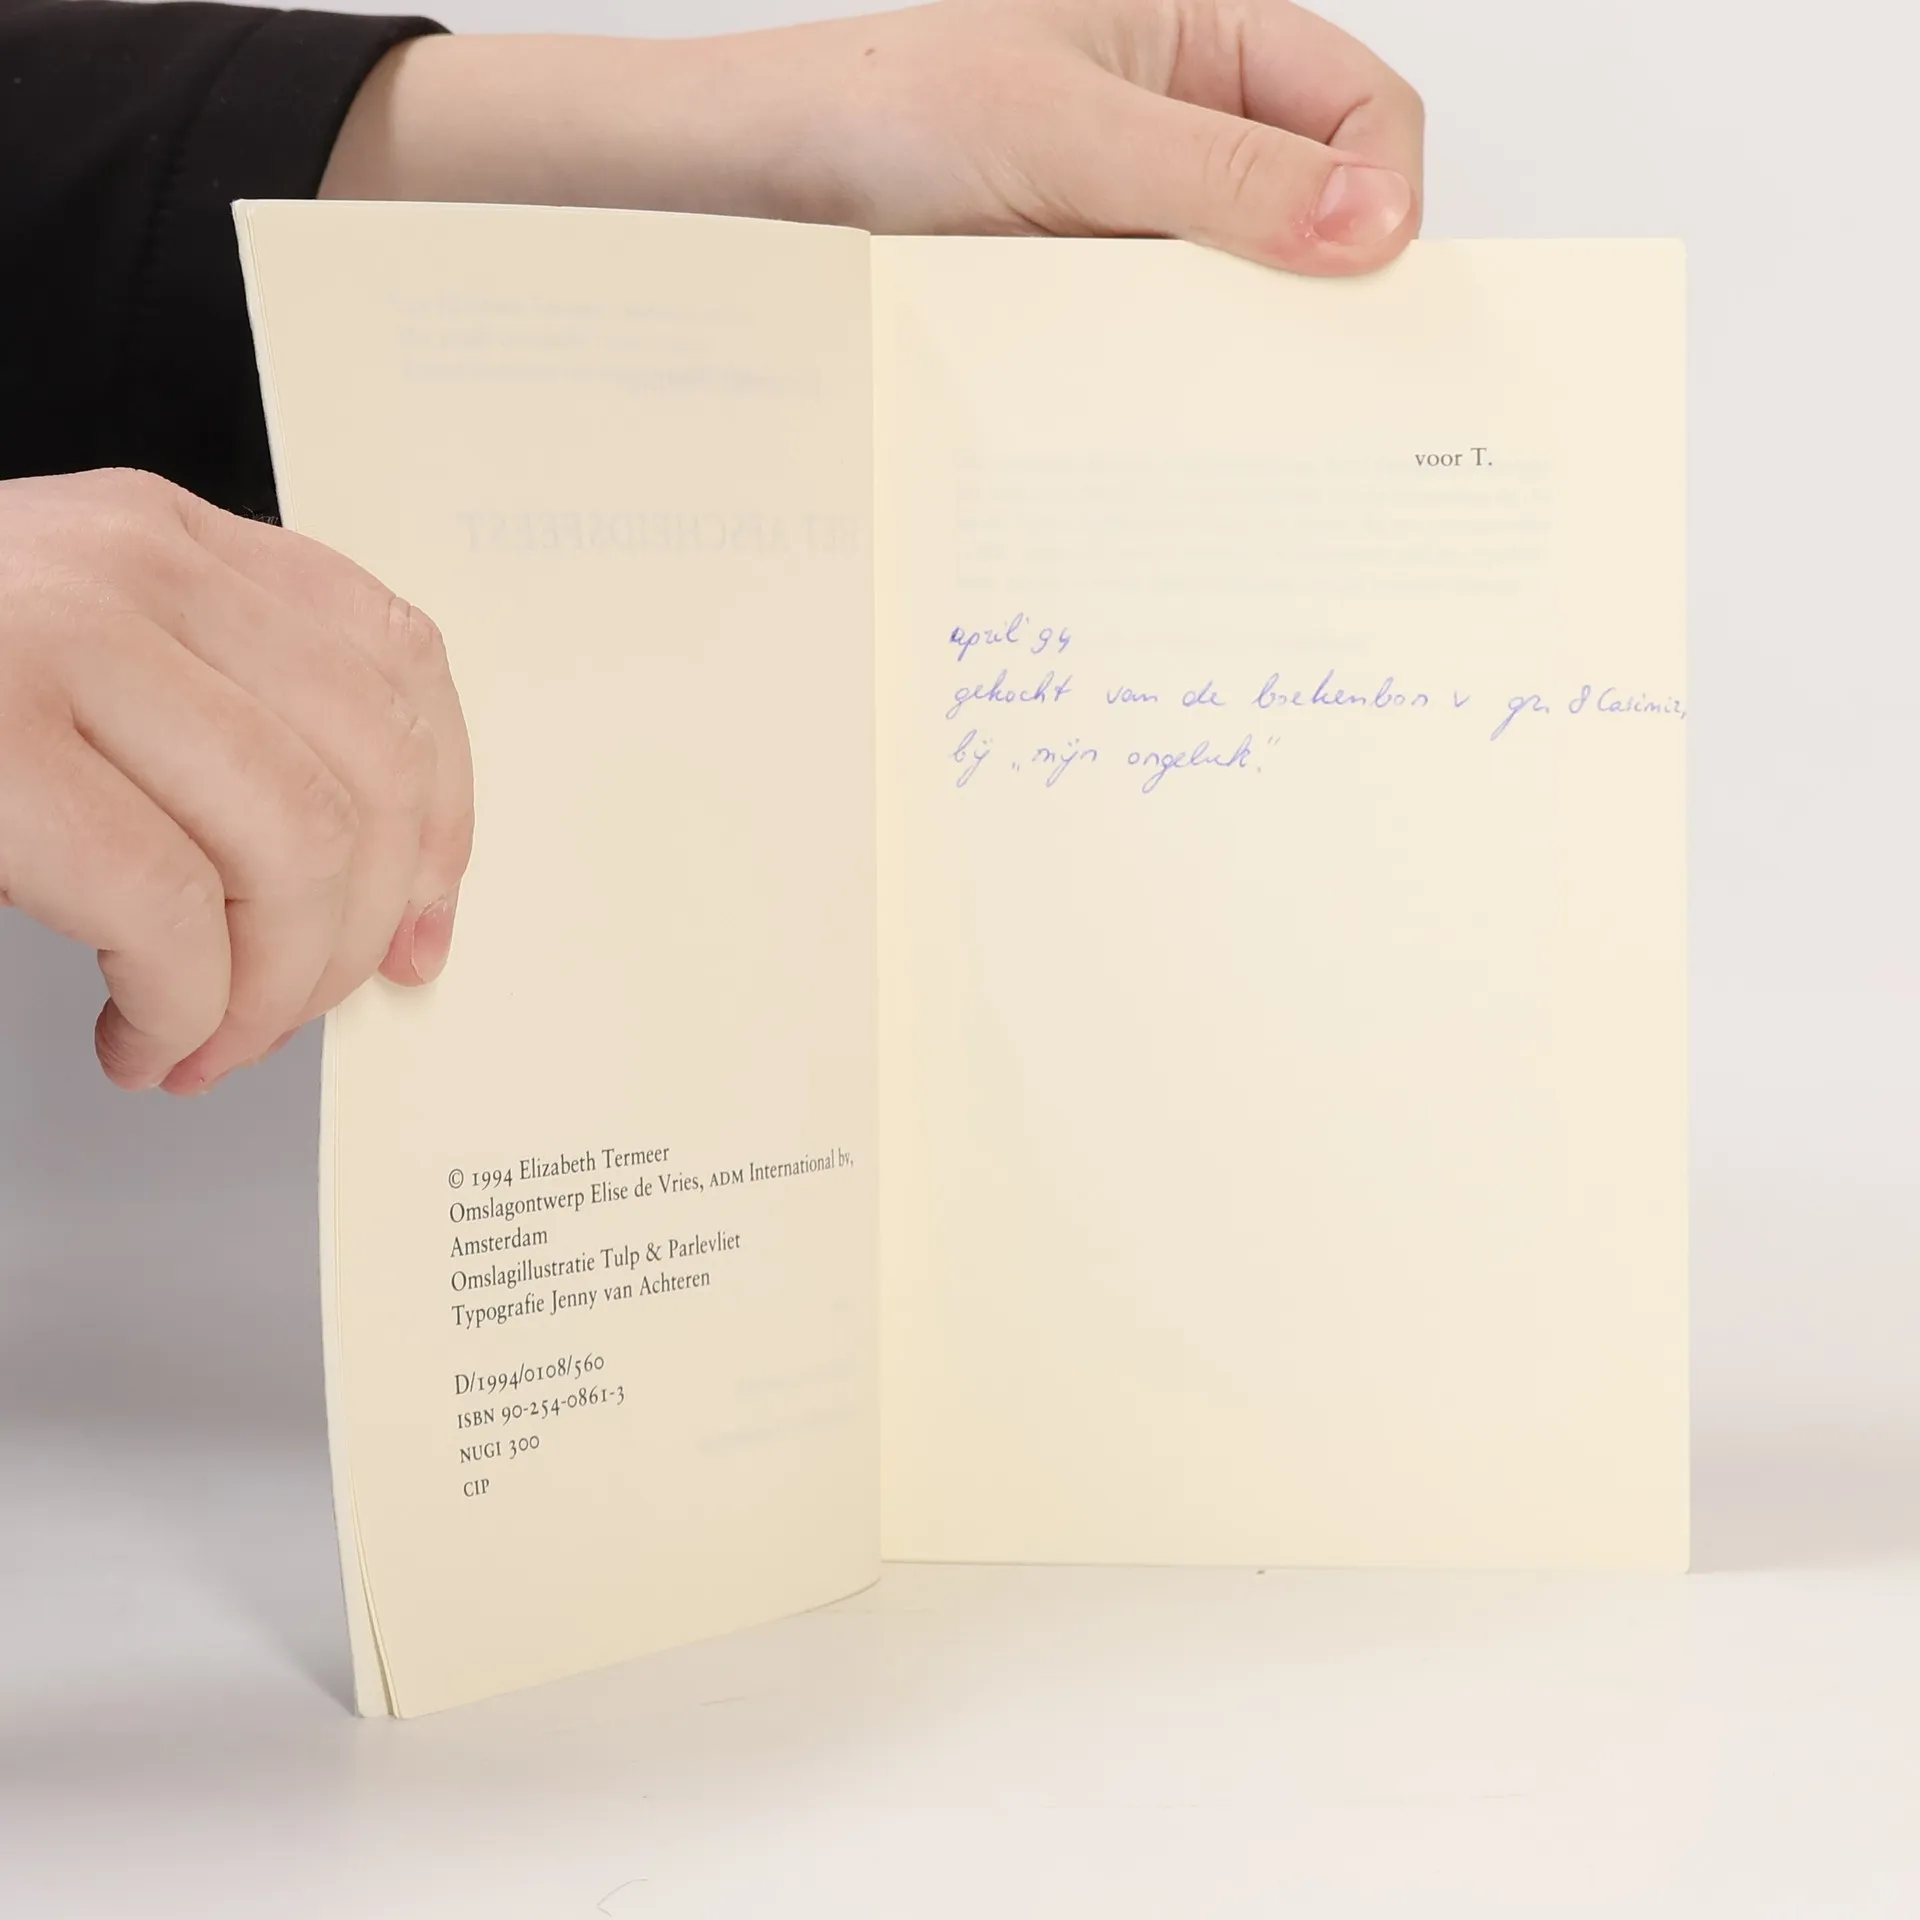 © 1994 Elizabeth Termeer
Omslagontwerp Elise de Vries, ADM International bv,
Amsterdam
Omslagillustratie Tulp & Parlevliet
Typografie Jenny van Achteren
D/1994/0108/560
ISBN 90-254-0861-3
NUGI 300
CIP
voor T.
april '94
gekocht van de boekenbon v gr. 8 Casimir,
bij „mijn ongeluk."